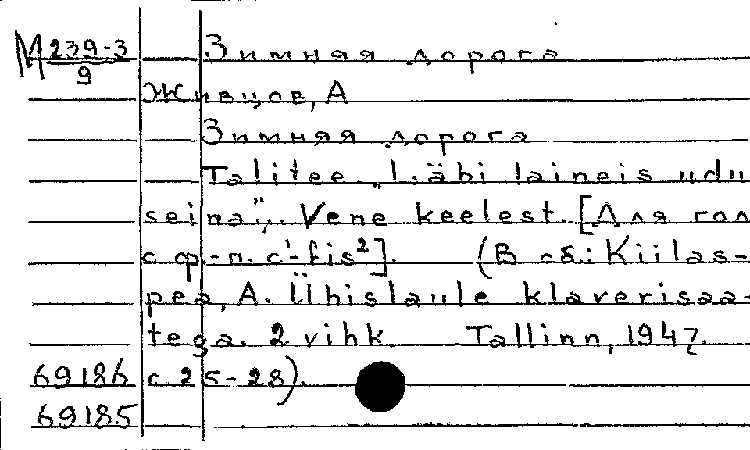 М 239-3/9 Зимняя дорога
Живцов, А
Зимняя дорога
Talitee. "Läbi laineis udu
seina",. Vene keelest. [Для гол
с ф.-п. c¹-fis²]. (В сб.: Kiilas-
pea, A. Ühislaule klaverisaa-
tega. 2 vihk. Tallinn, 1947.
69186 с 25-28).
69185